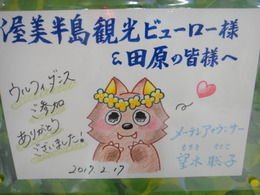 渥美半島観光ビューロー様
&田原の皆様へ
ウルフィダンス
ご参加
ありがとう
ございました!
2017.2.17
メ～テレアナウンサー
もちき さとこ
望木聡子